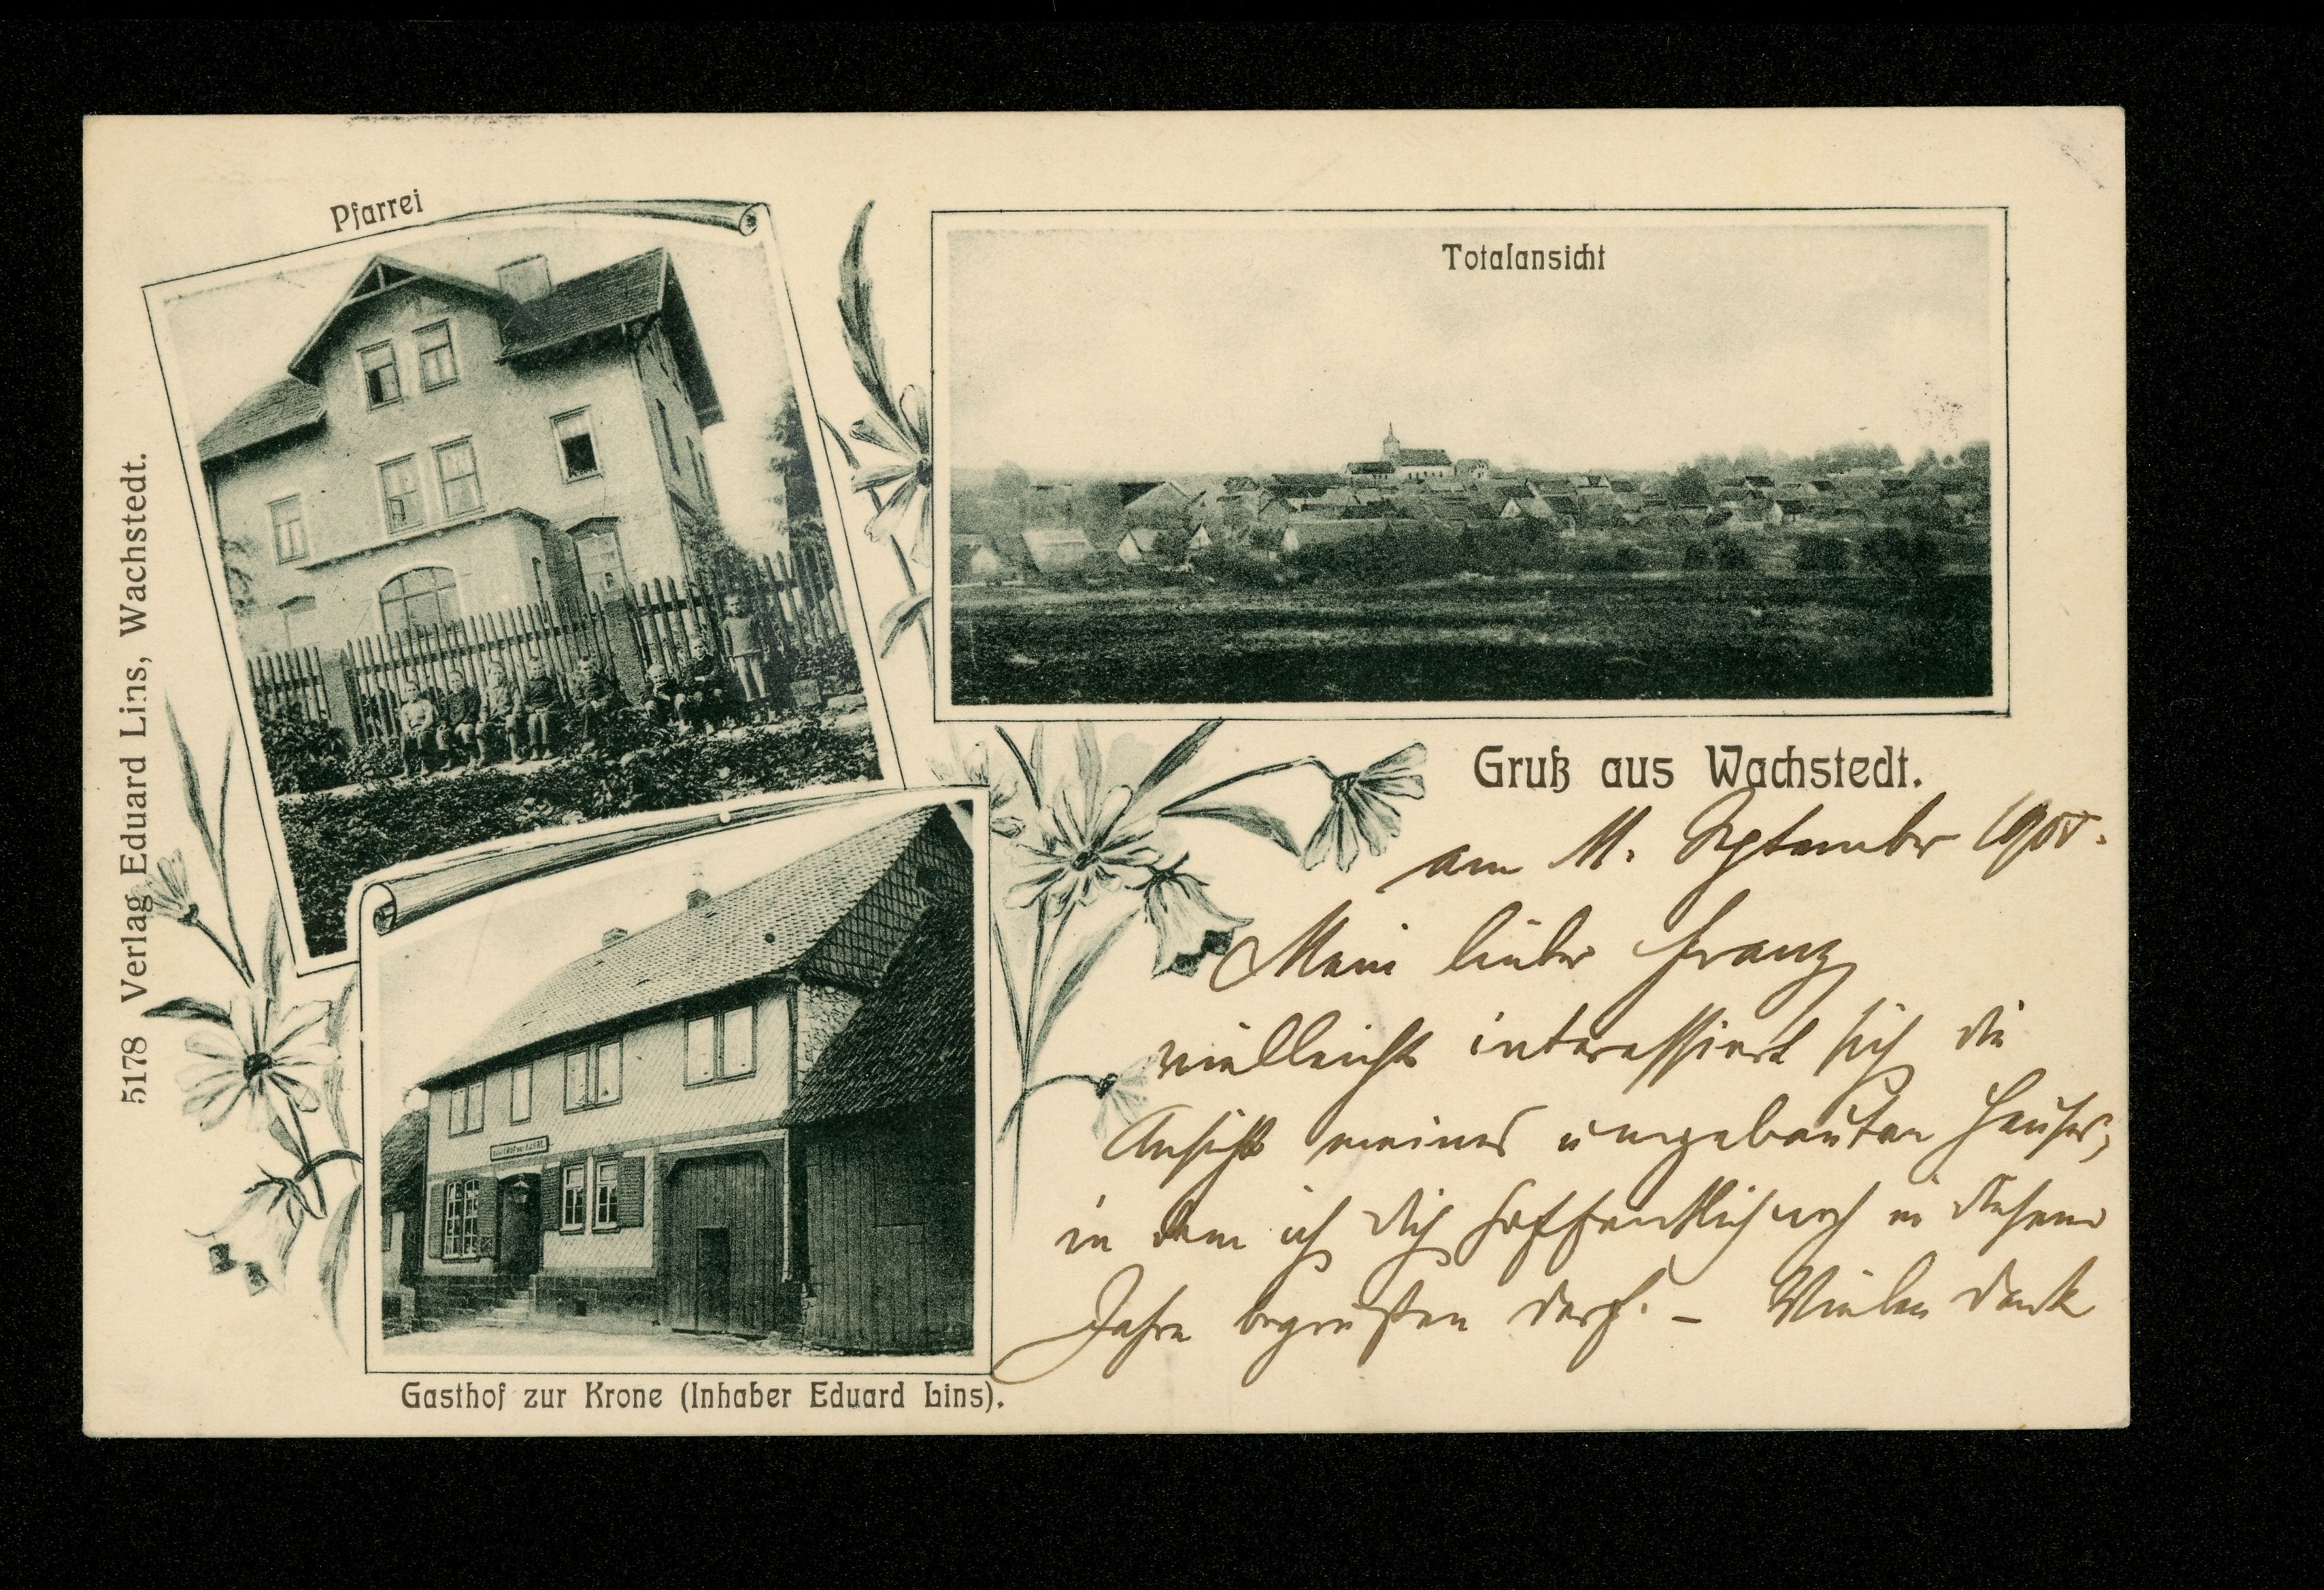 Pfarrei
Totalansicht
5178 Verlag Eduard Lins, Wachstedt.
Gruß aus Wachstedt.
am 11. September
Mein lieber Franz
vielleicht interessiert dich die
Ansicht meines umgebauten Hauses,
in dem ich dich hoffentlich noch in diesem
Jahre begrüßen darf. – Vielen Dank
Gasthof zur Krone (Inhaber Eduard Lins).